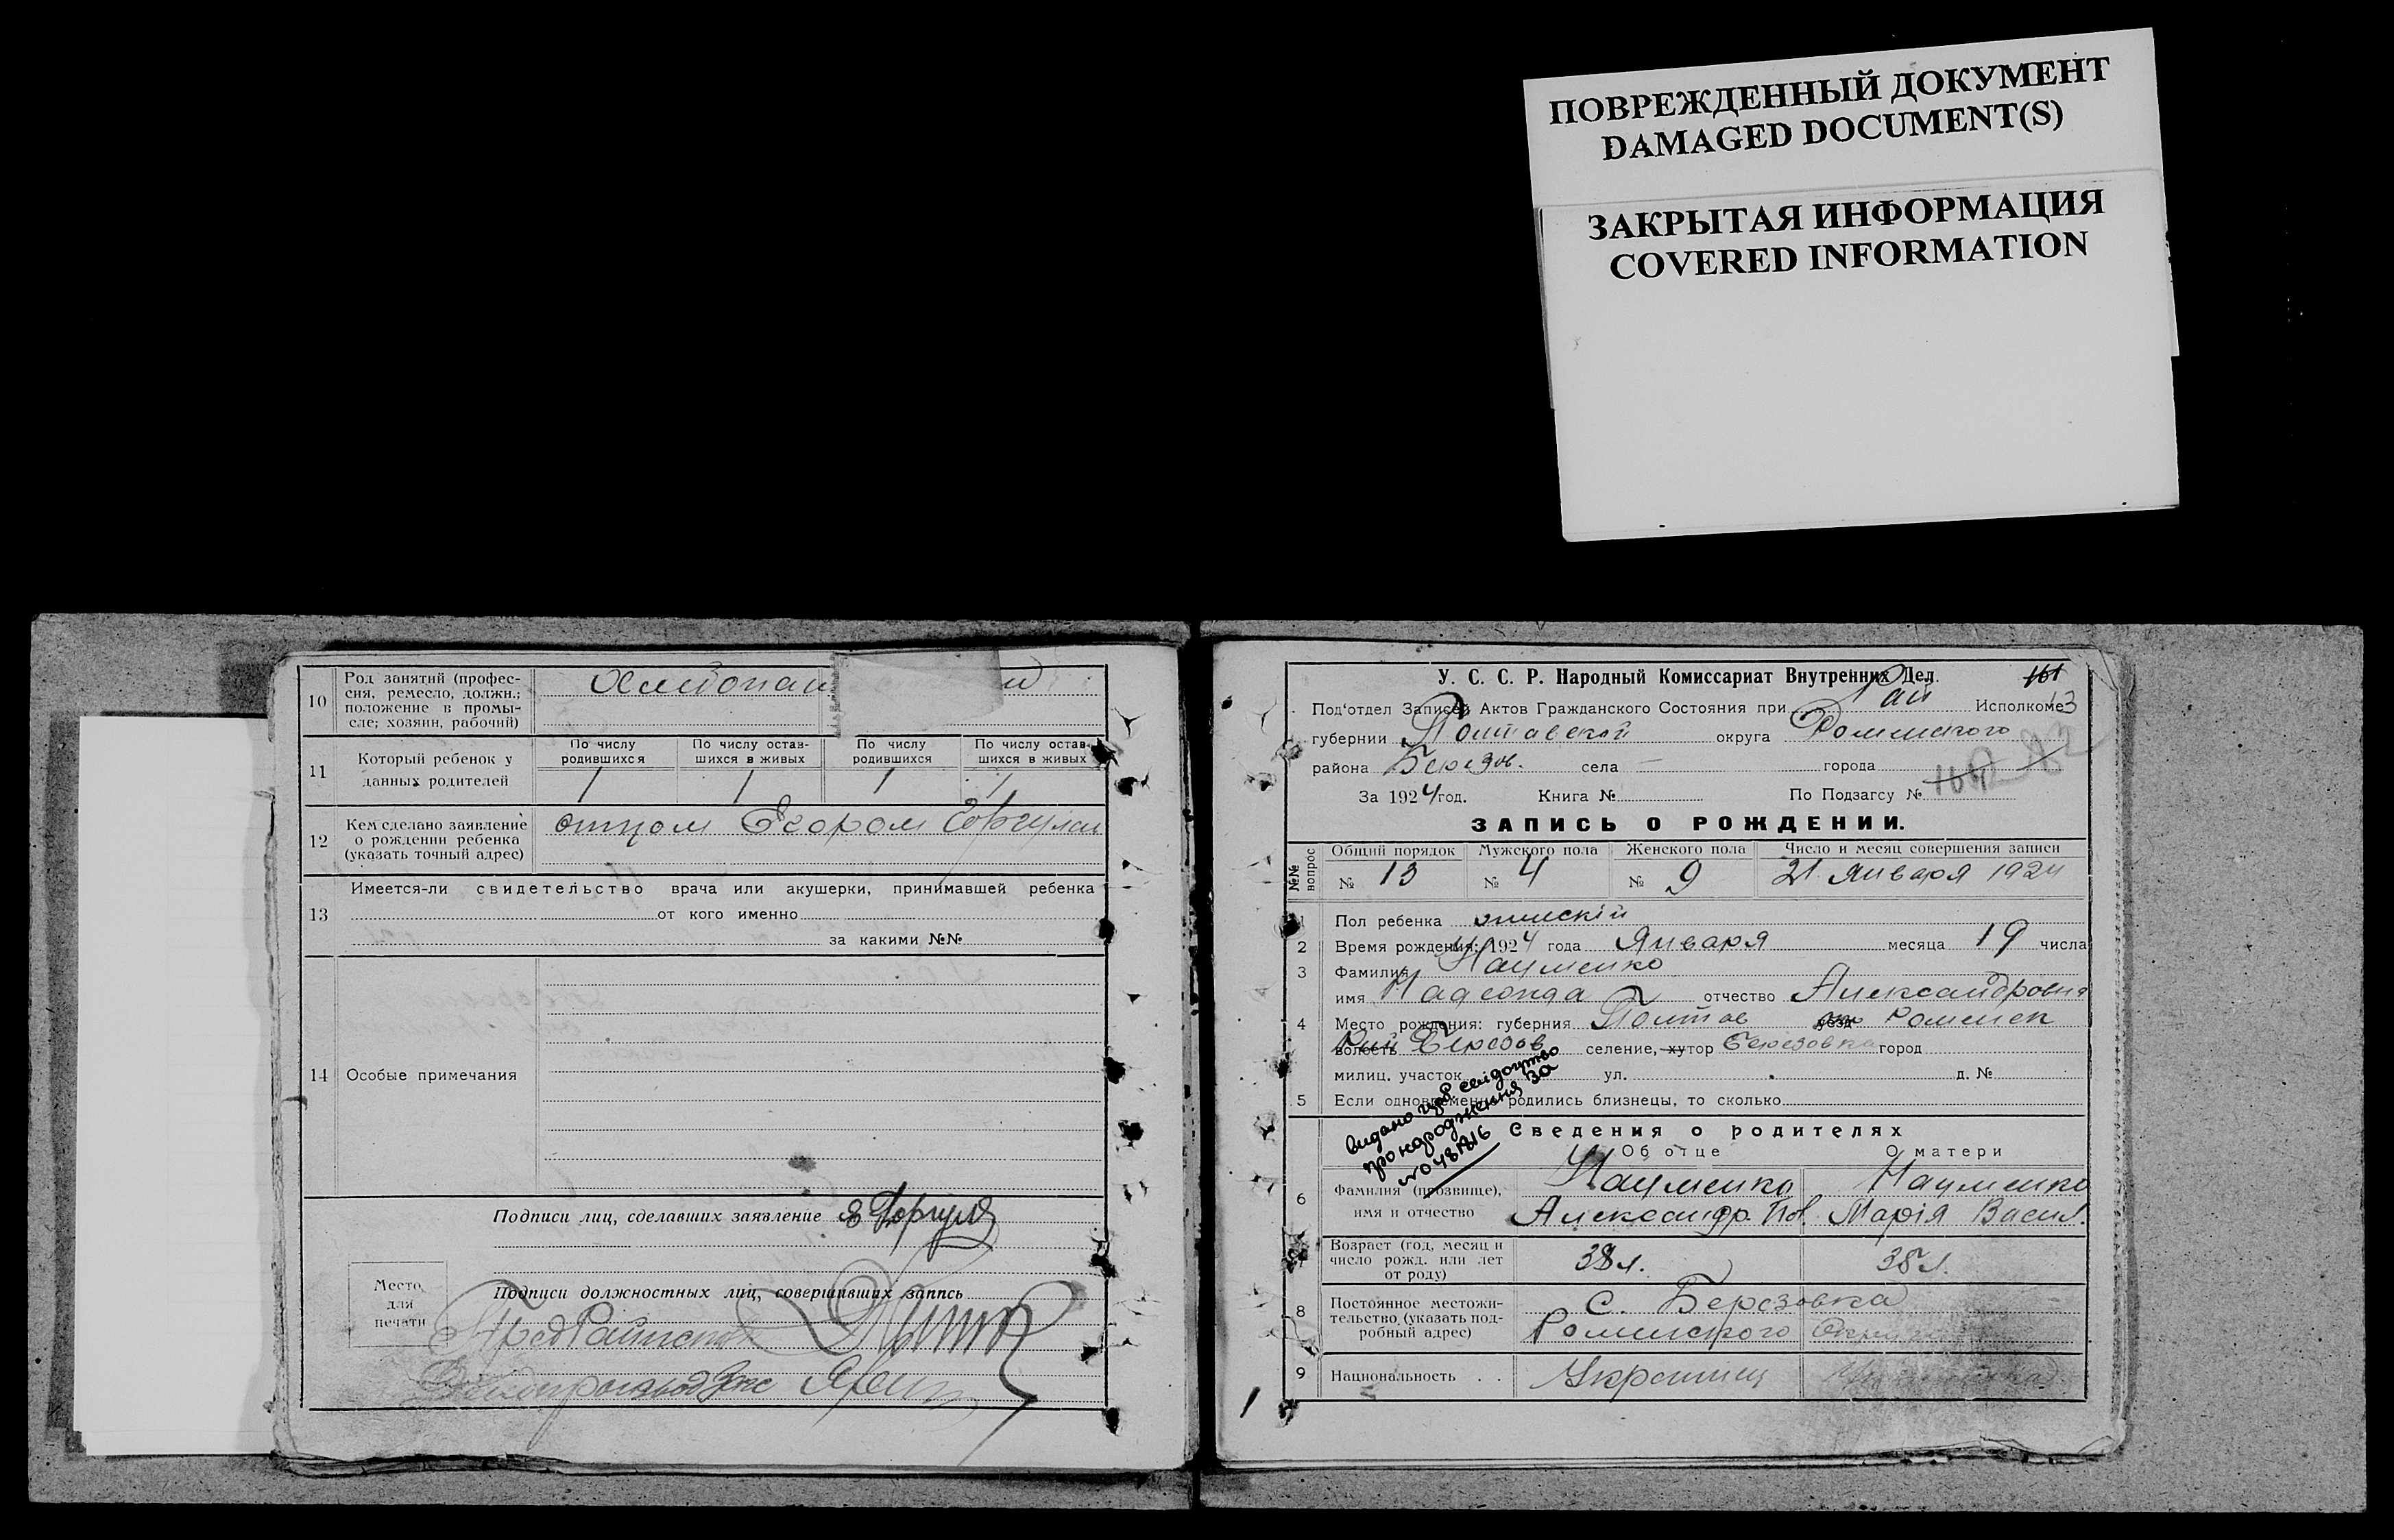 ПОВРЕЖДЕННЫЙ ДОКУМЕНТ
DAMAGED DOCUMENT(S)
ЗАКРЫТАЯ ИНФОРМАЦИЯ
COVERED INFORMATION
10 Род занятий (профес-
сия, ремесло, должн.;
положение в промы-
сле; хозяин, рабочий)
11 Который ребенок у
данных родителей
По числу
родившихся
По числу остав-
шихся в живых
По числу
родившихся
По числу остав-
шихся в живых
1 1 1 1
12 Кем сделано заявление
о рождении ребенка
(указать точный адрес)
отцом Егором
13 Имеется-ли свидетельство врача или акушерки, принимавшей ребенка
от кого именно
за какими №№
14 Особые примечания
Подписи лиц, сделавших заявление
Место
для
печати
Подписи должностных лиц, совершивших запись
У. С. С. Р. Народный Комиссариат Внутренних Дел.
161
Под'отдел Записей Актов Гражданского Состояния при Рай Исполкоме 13
губернии Полтавской округа Роменского
района Березов. села — города
За 1924 год. Книга № По Подзагсу №
ЗАПИСЬ О РОЖДЕНИИ.
№№ вопрос
Общий порядок Мужского пола Женского пола Число и месяц совершения записи
№ 13 № 4 № 9 21 Января 1924
1 Пол ребенка женский
2 Время рождения: 1924 года Января месяца 19 числа
3 Фамилия Науменко
имя Надежда отчество Александровна
4 Место рождения: губерния Полтов уезд Роменск
волость Березов селение, хутор Березовка город
милиц. участок ул. д. №
5 Если одновременно родились близнецы, то сколько
видано свідоцтво
про народження за
№ 048186
Сведения о родителях
Об отце О матери
6 Фамилия (прозвище),
имя и отчество
Науменко Науменко
Александр Марія Васил.
7 Возраст (год, месяц и
число рожд. или лет
от роду)
38 л. 38 л.
8 Постоянное местожи-
тельство (указать под-
робный адрес)
С. Березовка
Роменского
9 Национальность . .
Украинец
1